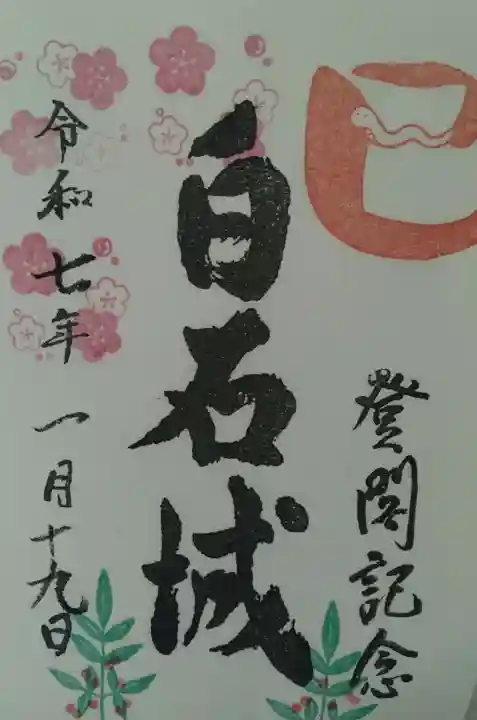 巳
登閣記念
白石城
令和七年一月十九日